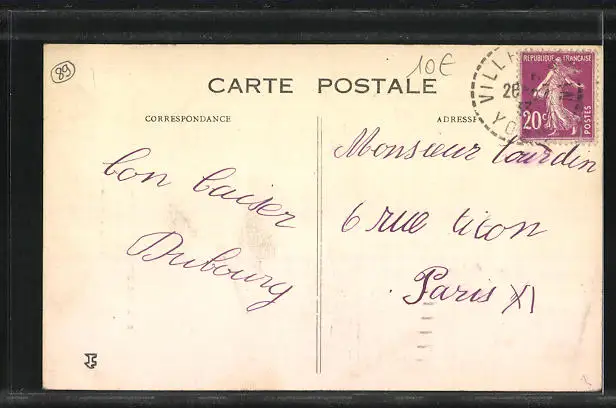 89
10€
CARTE POSTALE
CORRESPONDANCE
ADRESSE
REPUBLIQUE FRANÇAISE
20c
POSTES
VILLE
28
YO
bon baiser
Dubourg
Monsieur Tourdin
6 rue
Paris XI